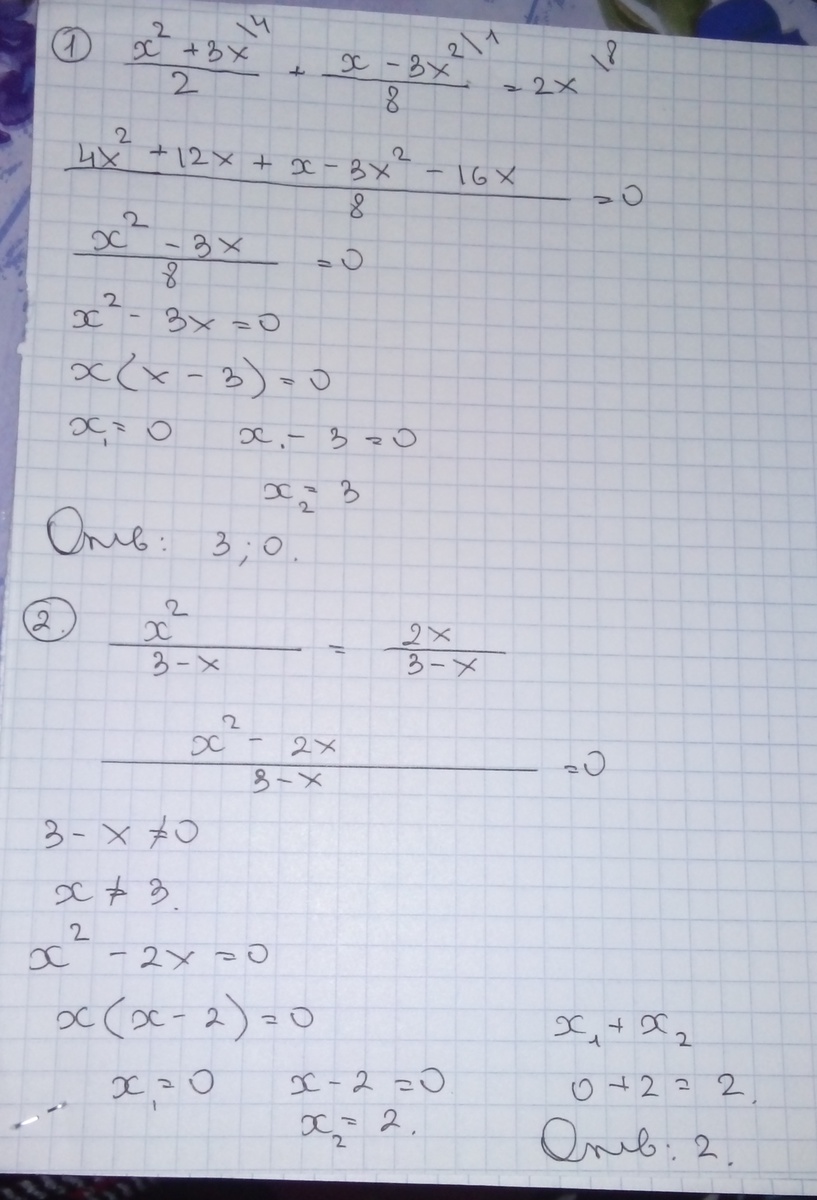 ① (x² + 3x)/2 \4 + (x - 3x²)/8 \1 = 2x \8
(4x² + 12x + x - 3x² - 16x)/8 = 0
(x² - 3x)/8 = 0
x² - 3x = 0
x(x - 3) = 0
x₁ = 0 x - 3 = 0
x₂ = 3
Отв: 3; 0.
②. x²/(3 - x) = 2x/(3 - x)
(x² - 2x)/(3 - x) = 0
3 - x ≠ 0
x ≠ 3.
x² - 2x = 0
x(x - 2) = 0
x₁ = 0 x - 2 = 0
x₂ = 2.
x₁ + x₂
0 + 2 = 2.
Отв: 2.